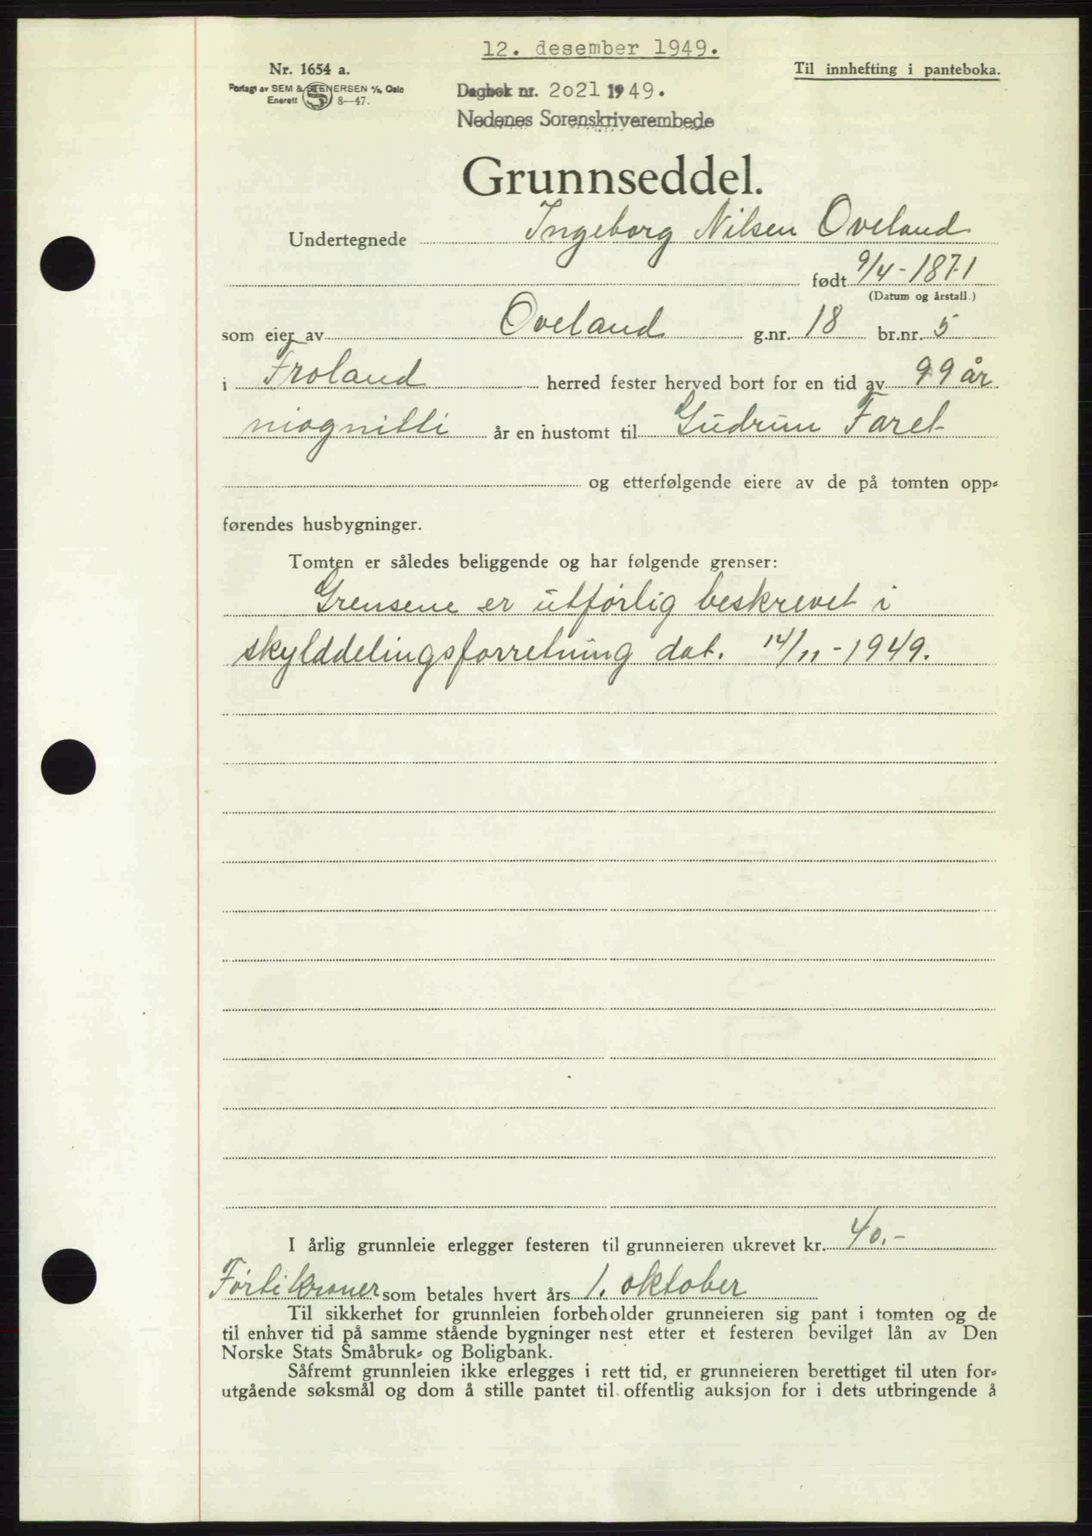 12. desember 1949.
Nr. 1654 a.
Til innhefting i panteboka.
Forlagt av SEM & STENERSEN A/S, Oslo
Enerett S 8—47.
Dagbok nr. 2021 1949.
Nedenes Sorenskriverembede
Grunnseddel.
Undertegnede Ingeborg Nilsen Oveland
født 9/4-1871
(Datum og årstall.)
som eier av Oveland g.nr. 18 br.nr. 5
i Froland herred fester herved bort for en tid av 99 år
niognitti år en hustomt til Gudrun Faret
og etterfølgende eiere av de på tomten opp=
førendes husbygninger.
Tomten er således beliggende og har følgende grenser:
Grensene er utførlig beskrevet i
skylddelingsforretning dat. 14/11-1949.
I årlig grunnleie erlegger festeren til grunneieren ukrevet kr. 40.-
Førti kroner som betales hvert års 1. oktober
Til sikkerhet for grunnleien forbeholder grunneieren sig pant i tomten og de
til enhver tid på samme stående bygninger nest etter et festeren bevilget lån av Den
Norske Stats Småbruk= og Boligbank.
Såfremt grunnleien ikke erlegges i rett tid, er grunneieren berettiget til uten for=
utgående søksmål og dom å stille pantet til offentlig auksjon for i dets utbringende å